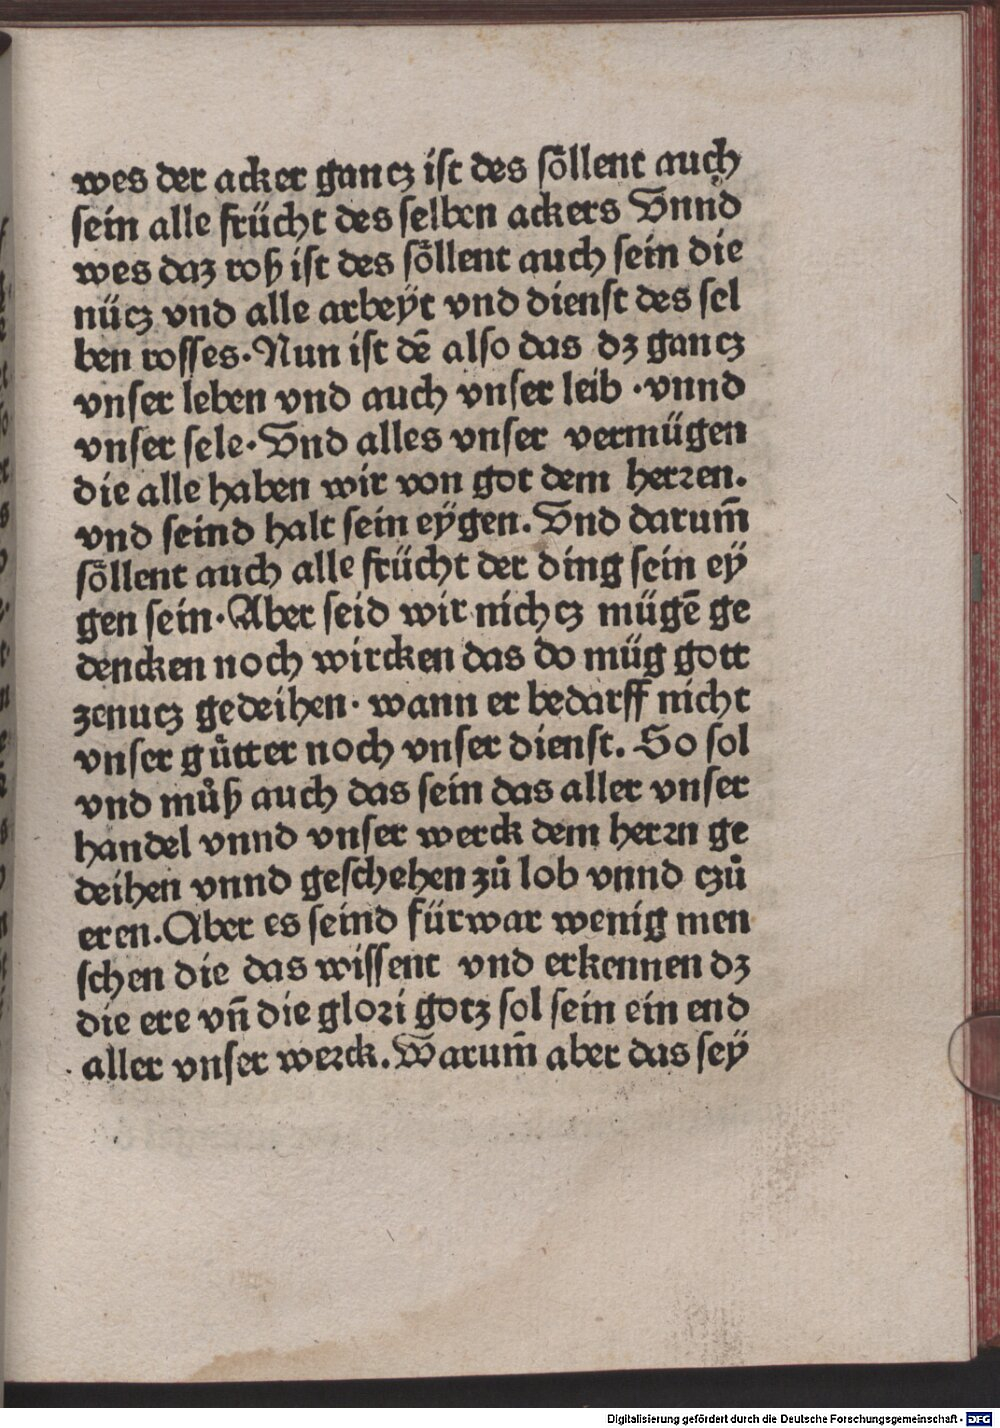 wes der acker gancz ist des söllent auch
sein alle frücht des selben ackers Vnnd
wes daz roß ist des söllent auch sein die
nücz vnd alle arbeÿt vnd dienst des sel
ben rosses. Nun ist dē also das dz gancz
vnser leben vnd auch vnser leib · vnnd
vnser sele. Vnd alles vnser vermügen
die alle haben wir von got dem herren.
vnd seind halt sein eÿgen. Vnd darum̄
söllent auch alle frücht der ding sein eÿ
gen sein. Aber seid wir nichcz mügē ge
dencken noch wircken das do müg gott
zenucz gedeihen · wann er bedarff nicht
vnser gůtter noch vnser dienst. So sol
vnd můß auch das sein das aller vnser
handel vnnd vnser werck dem herrn ge
deihen vnnd geschehen zů lob vnnd czů
eren. Aber es seind fürwar wenig men
schen die das wissent vnd erkennen dz
die ere vn̄ die glori gotz sol sein ein end
aller vnser werck. Warum̄ aber das seÿ
Digitalisierung gefördert durch die Deutsche Forschungsgemeinschaft - DFG